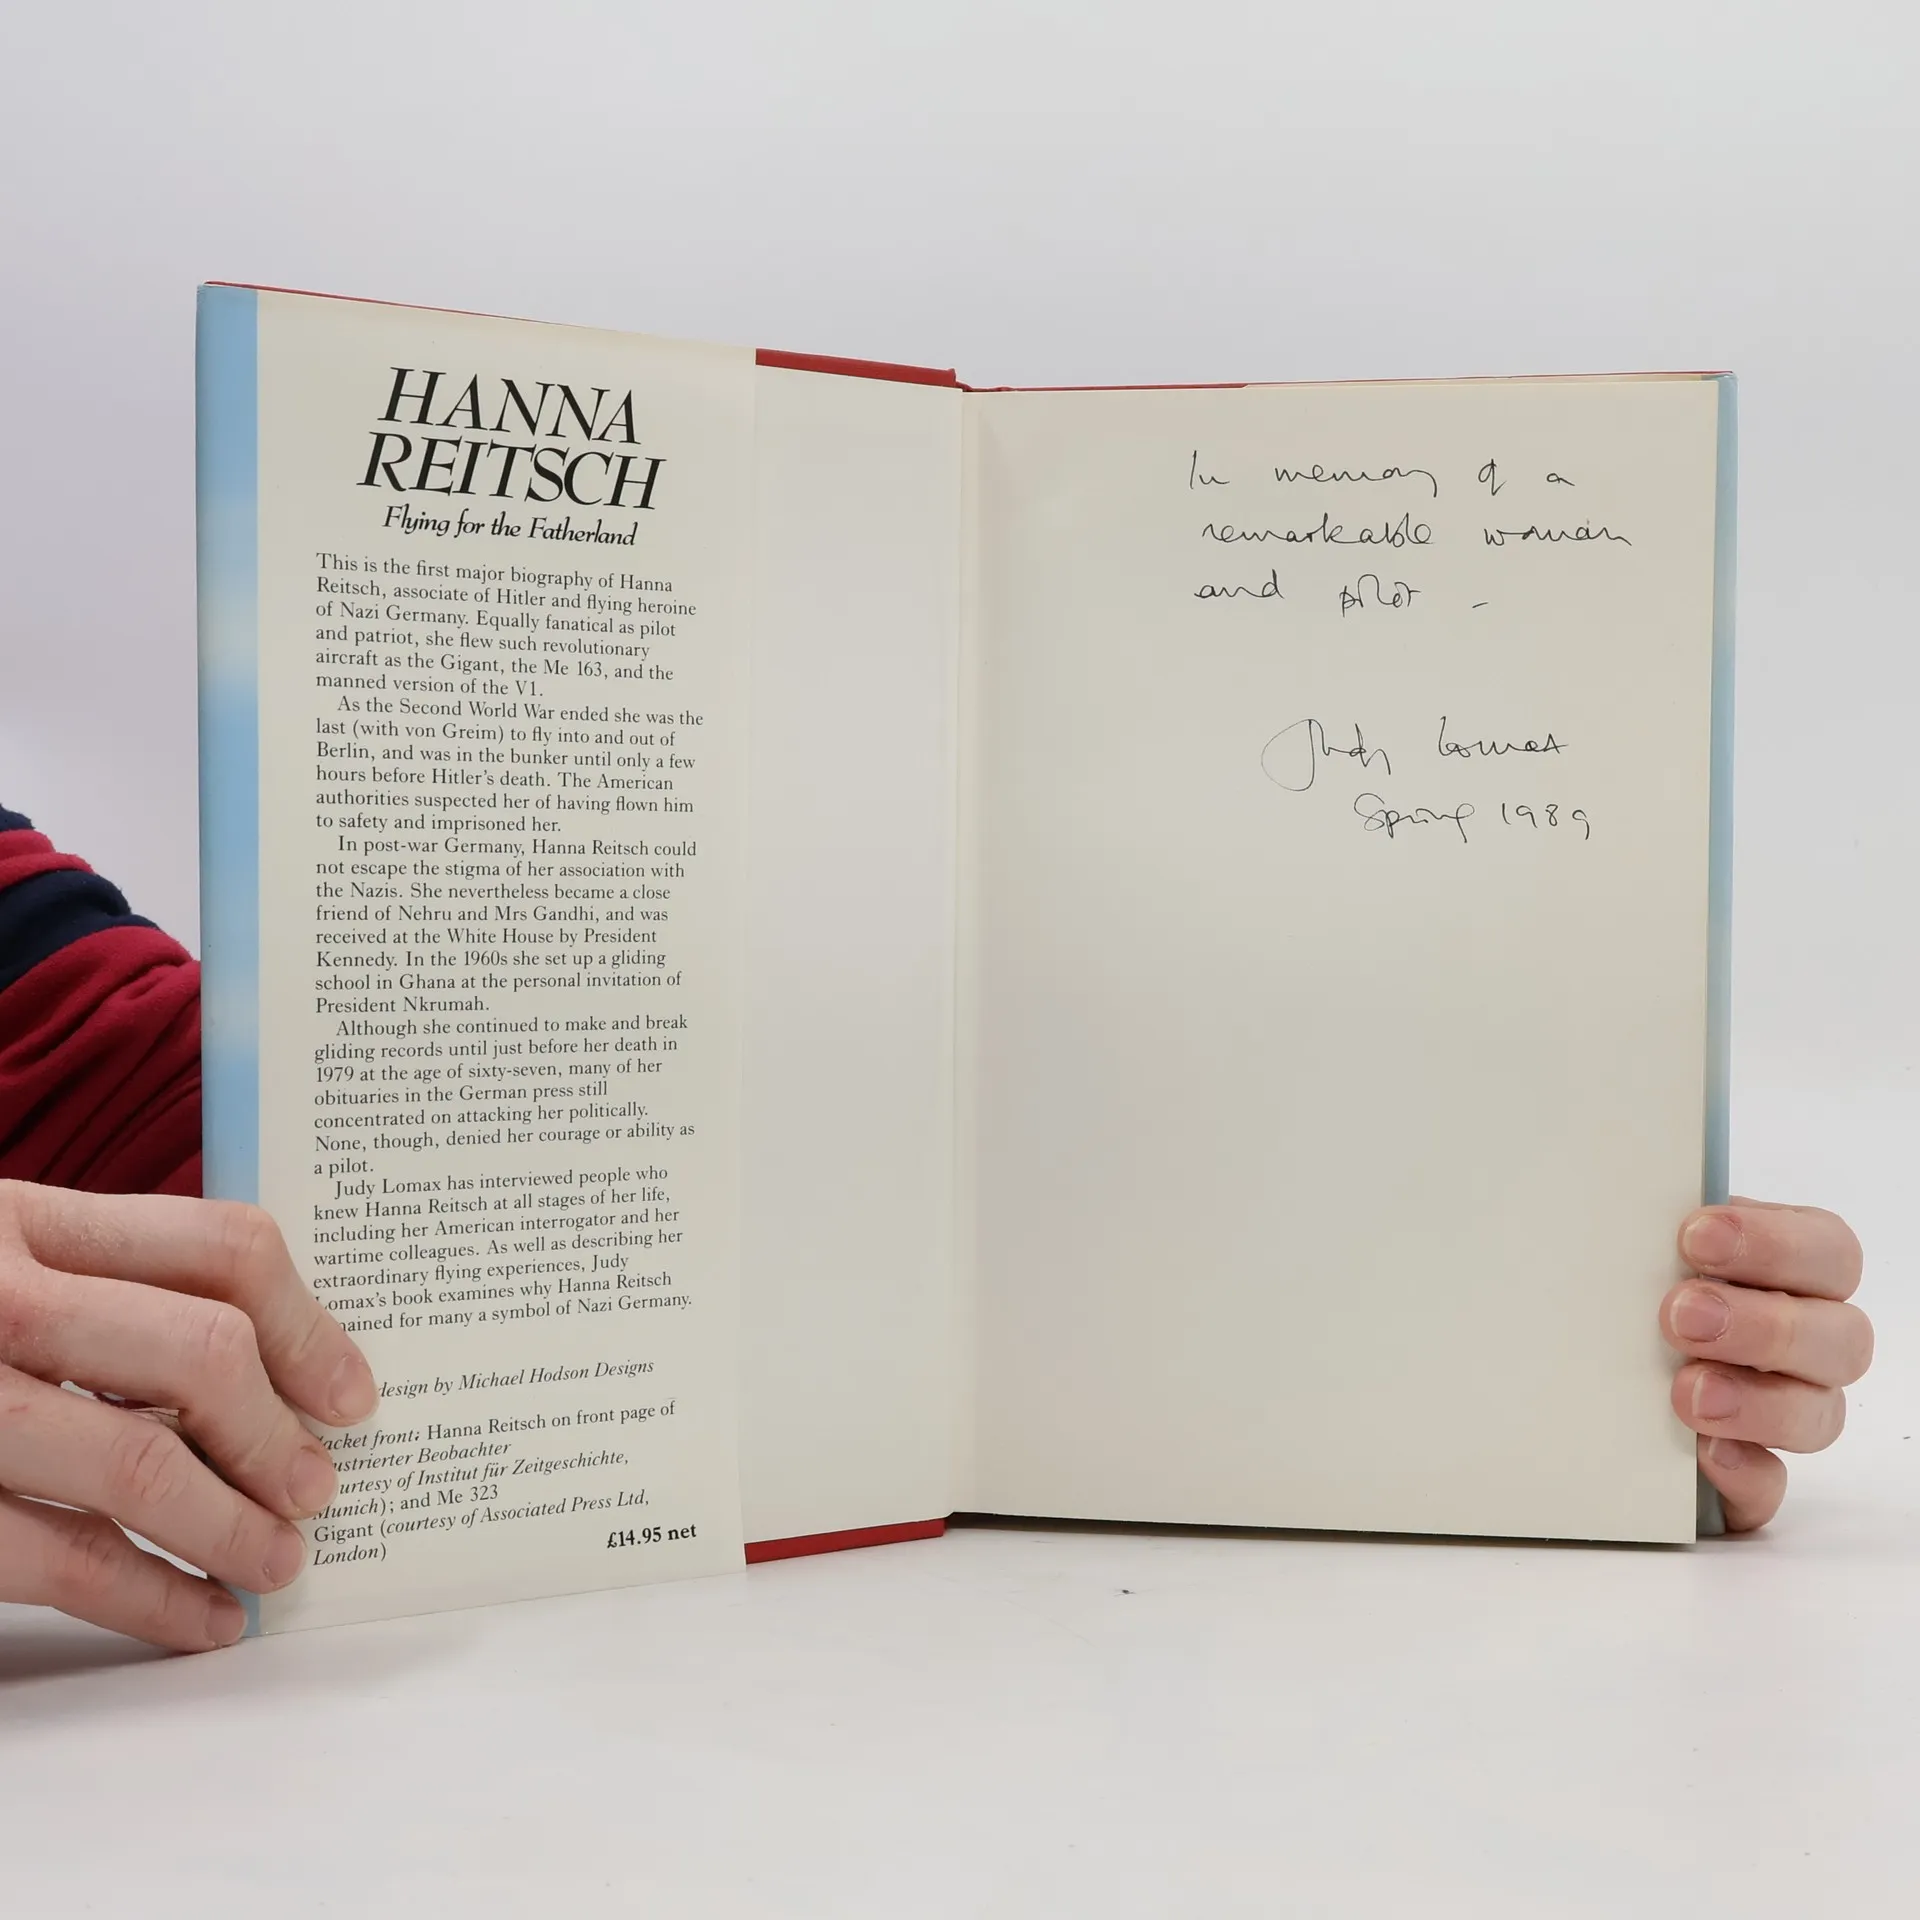 HANNA
REITSCH
Flying for the Fatherland
This is the first major biography of Hanna
Reitsch, associate of Hitler and flying heroine
of Nazi Germany. Equally fanatical as pilot
and patriot, she flew such revolutionary
aircraft as the Gigant, the Me 163, and the
manned version of the V1.
As the Second World War ended she was the
last (with von Greim) to fly into and out of
Berlin, and was in the bunker until only a few
hours before Hitler's death. The American
authorities suspected her of having flown him
to safety and imprisoned her.
In post-war Germany, Hanna Reitsch could
not escape the stigma of her association with
the Nazis. She nevertheless became a close
friend of Nehru and Mrs Gandhi, and was
received at the White House by President
Kennedy. In the 1960s she set up a gliding
school in Ghana at the personal invitation of
President Nkrumah.
Although she continued to make and break
gliding records until just before her death in
1979 at the age of sixty-seven, many of her
obituaries in the German press still
concentrated on attacking her politically.
None, though, denied her courage or ability as
a pilot.
Judy Lomax has interviewed people who
knew Hanna Reitsch at all stages of her life,
including her American interrogator and her
wartime colleagues. As well as describing her
extraordinary flying experiences, Judy
Lomax's book examines why Hanna Reitsch
for many a symbol of Nazi Germany.
design by Michael Hodson Designs
front: Hanna Reitsch on front page of
Beobachter
of Institut für Zeitgeschichte,
Munich); and Me 323
Gigant (courtesy of Associated Press Ltd,
London)
£14.95 net
In memory of a
remarkable woman
and pilot -
Judy Lomax
Spring 1989